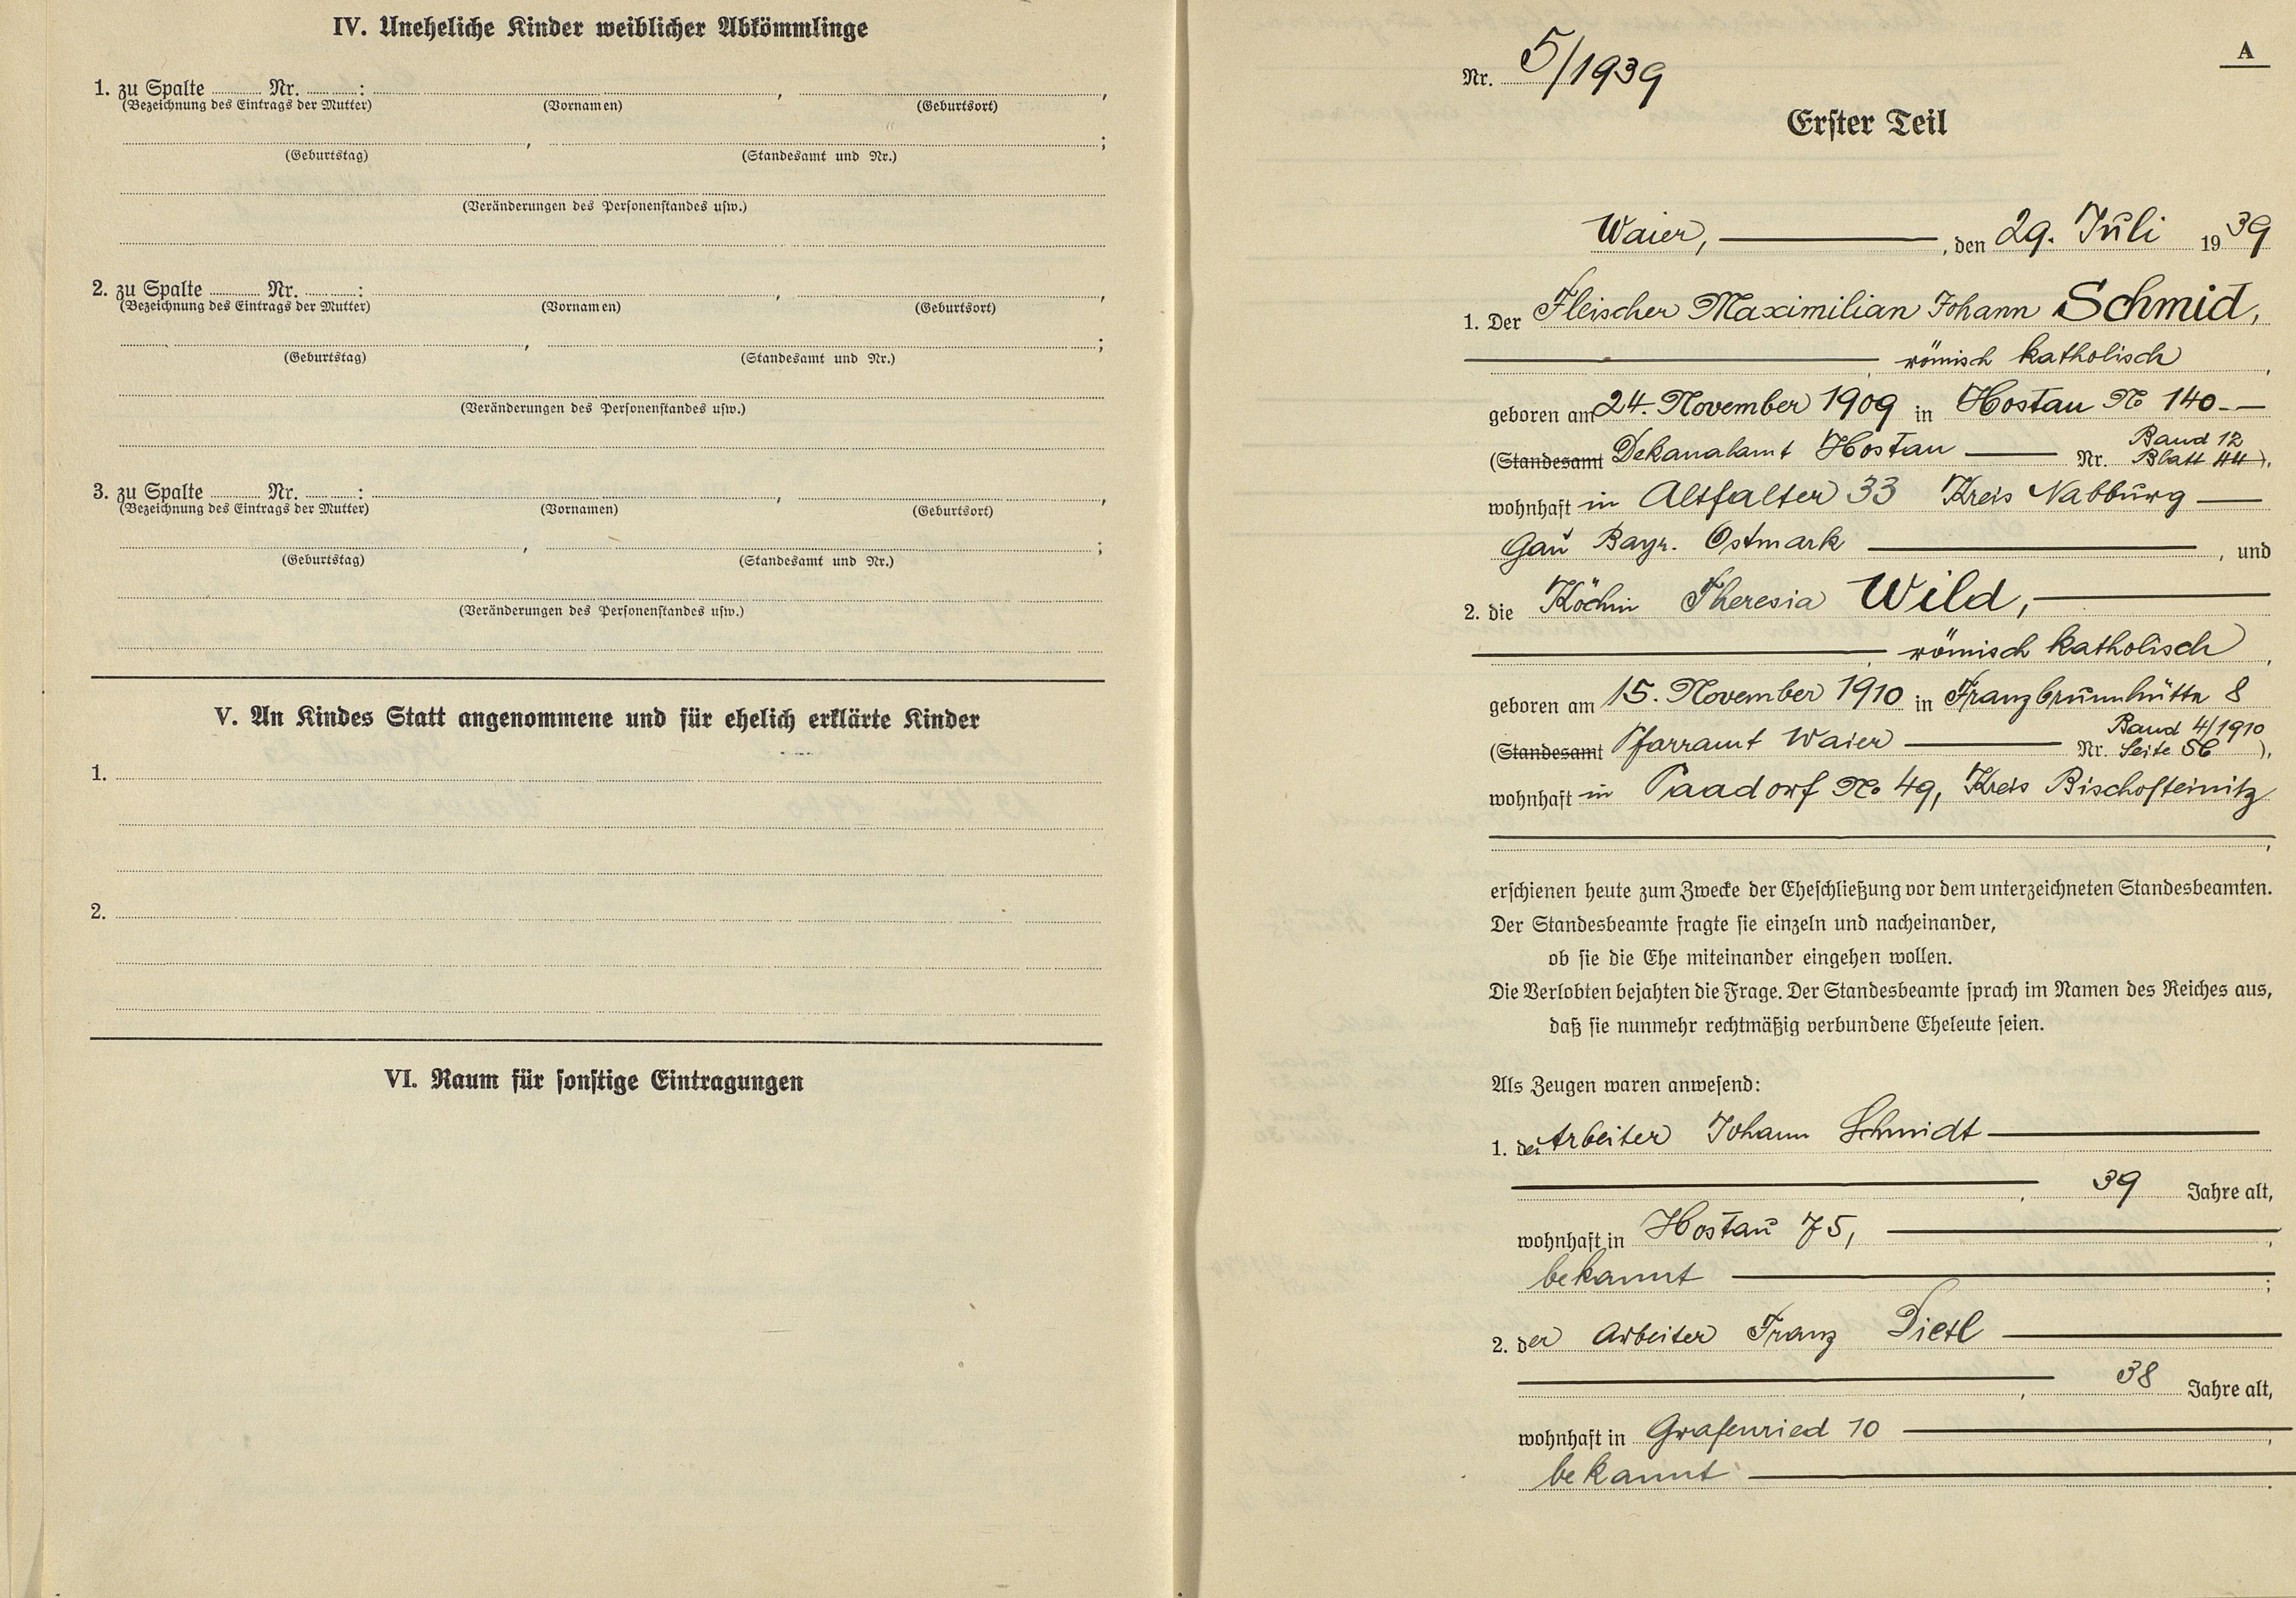 IV. Uneheliche Kinder weiblicher Abkömmlinge
1. zu Spalte ........ Nr. ........ : ........ , ........ ,
(Bezeichnung des Eintrags der Mutter) (Vornamen) (Geburtsort)
........ , ........ ;
(Geburtstag) (Standesamt und Nr.)
(Veränderungen des Personenstandes usw.)
2. zu Spalte ........ Nr. ........ : ........ , ........ ,
(Bezeichnung des Eintrags der Mutter) (Vornamen) (Geburtsort)
........ , ........ ;
(Geburtstag) (Standesamt und Nr.)
(Veränderungen des Personenstandes usw.)
3. zu Spalte ........ Nr. ........ : ........ , ........ ,
(Bezeichnung des Eintrags der Mutter) (Vornamen) (Geburtsort)
........ , ........ ;
(Geburtstag) (Standesamt und Nr.)
(Veränderungen des Personenstandes usw.)
V. An Kindes Statt angenommene und für ehelich erklärte Kinder
1.
2.
VI. Raum für sonstige Eintragungen
A
Nr. 5/1939
Erster Teil
Waier, , den 29. Juli 1939
1. Der Fleischer Maximilian Johann Schmid,
römisch katholisch ,
geboren am 24. November 1909 in Hostau No 140
Band 12
(Standesamt Dekanalamt Hostau Nr. Blatt 44),
wohnhaft in Altfalter 33 Kreis Nabburg
Gau Bayr. Ostmark , und
2. die Köchin Theresia Wild,
römisch katholisch ,
geboren am 15. November 1910 in Franzbrunnhütte 8
Band 4/1910
(Standesamt Pfarramt Waier Nr. Seite 56 ),
wohnhaft in Paadorf No 49, Kreis Bischofteinitz
,
erschienen heute zum Zwecke der Eheschließung vor dem unterzeichneten Standesbeamten.
Der Standesbeamte fragte sie einzeln und nacheinander,
ob sie die Ehe miteinander eingehen wollen.
Die Verlobten bejahten die Frage. Der Standesbeamte sprach im Namen des Reiches aus,
daß sie nunmehr rechtmäßig verbundene Eheleute seien.
Als Zeugen waren anwesend:
1. der Arbeiter Johann Schmidt
, 39 Jahre alt,
wohnhaft in Hostau 75, ,
bekannt ;
2. der Arbeiter Franz Dietl
, 38 Jahre alt,
wohnhaft in Grafenried 10 ,
bekannt .